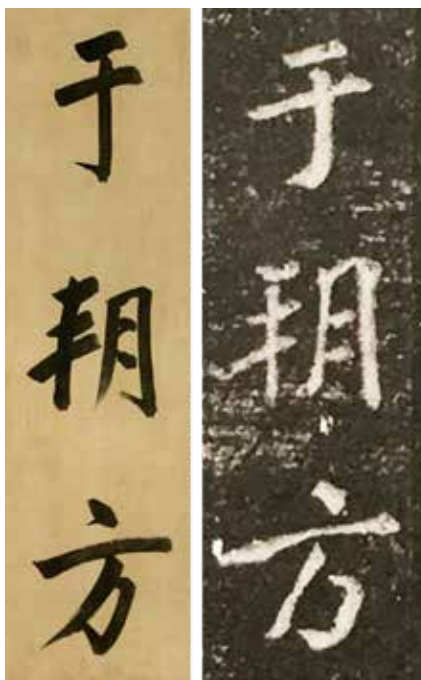 于朔方
于朔方